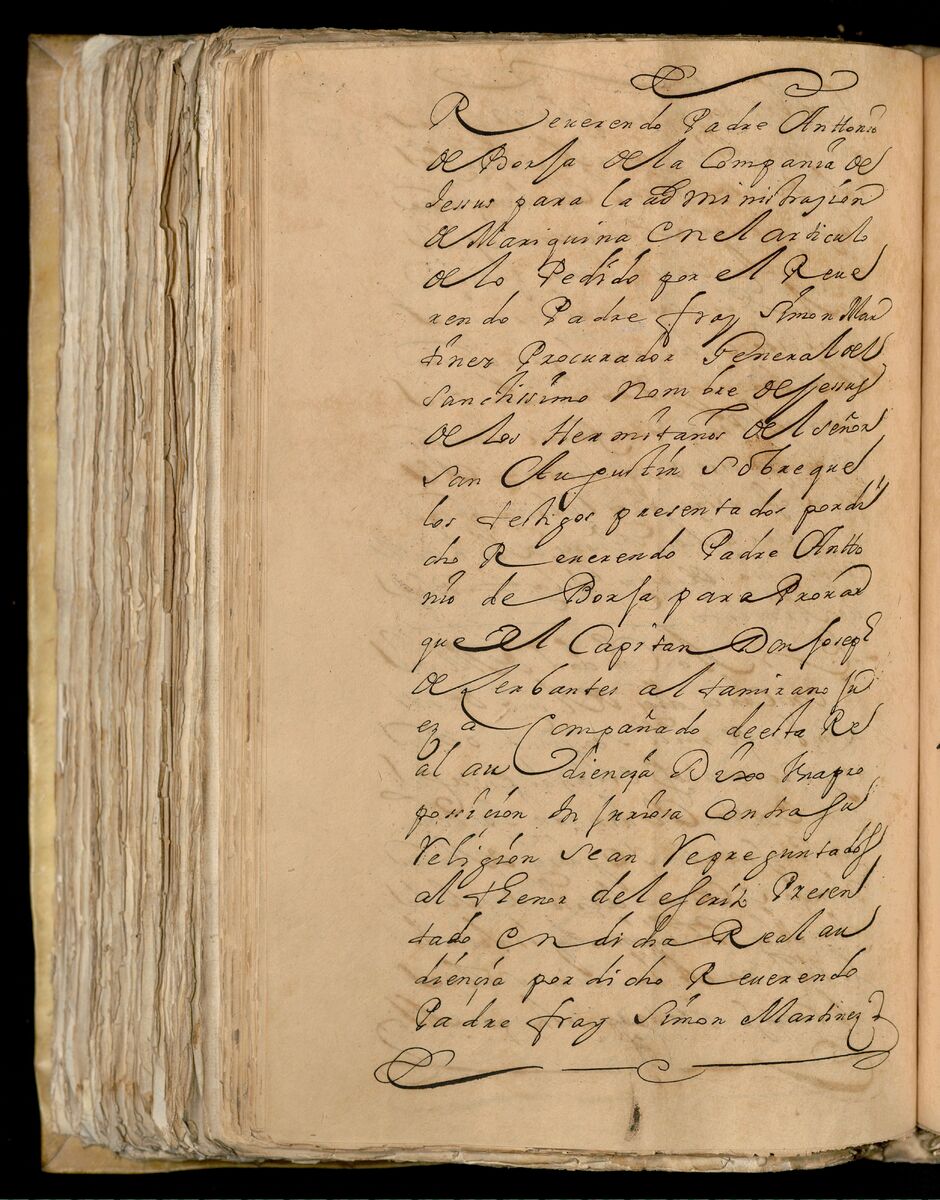 Reuerendo Padre Anttonio
de Borja de la Compania de
Jessus para la administrasion
de Mariquina en el articulo
de lo Pedido por el Reue
rendo Padre fray Simon Mar
tinez Procurador General del
Sanctissimo Nombre de Jessus
de los Hermitaños del señor
San Augustin sobre que
los testigos presentados por di
cho Reuerendo Padre Antto
nio de Borja para Provar
que El Capitan Don Joseph
de Serbantes altamirano Ju
ez a Compañado de esta Re
al audiençia Dixo Vna pro
possicion Injuriosa Contra su
Religion sean Repreguntados
al thenor del escrito Presen
tado en dicha Real au
diençia por dicho Reuerendo
Padre fray Simon Martinez